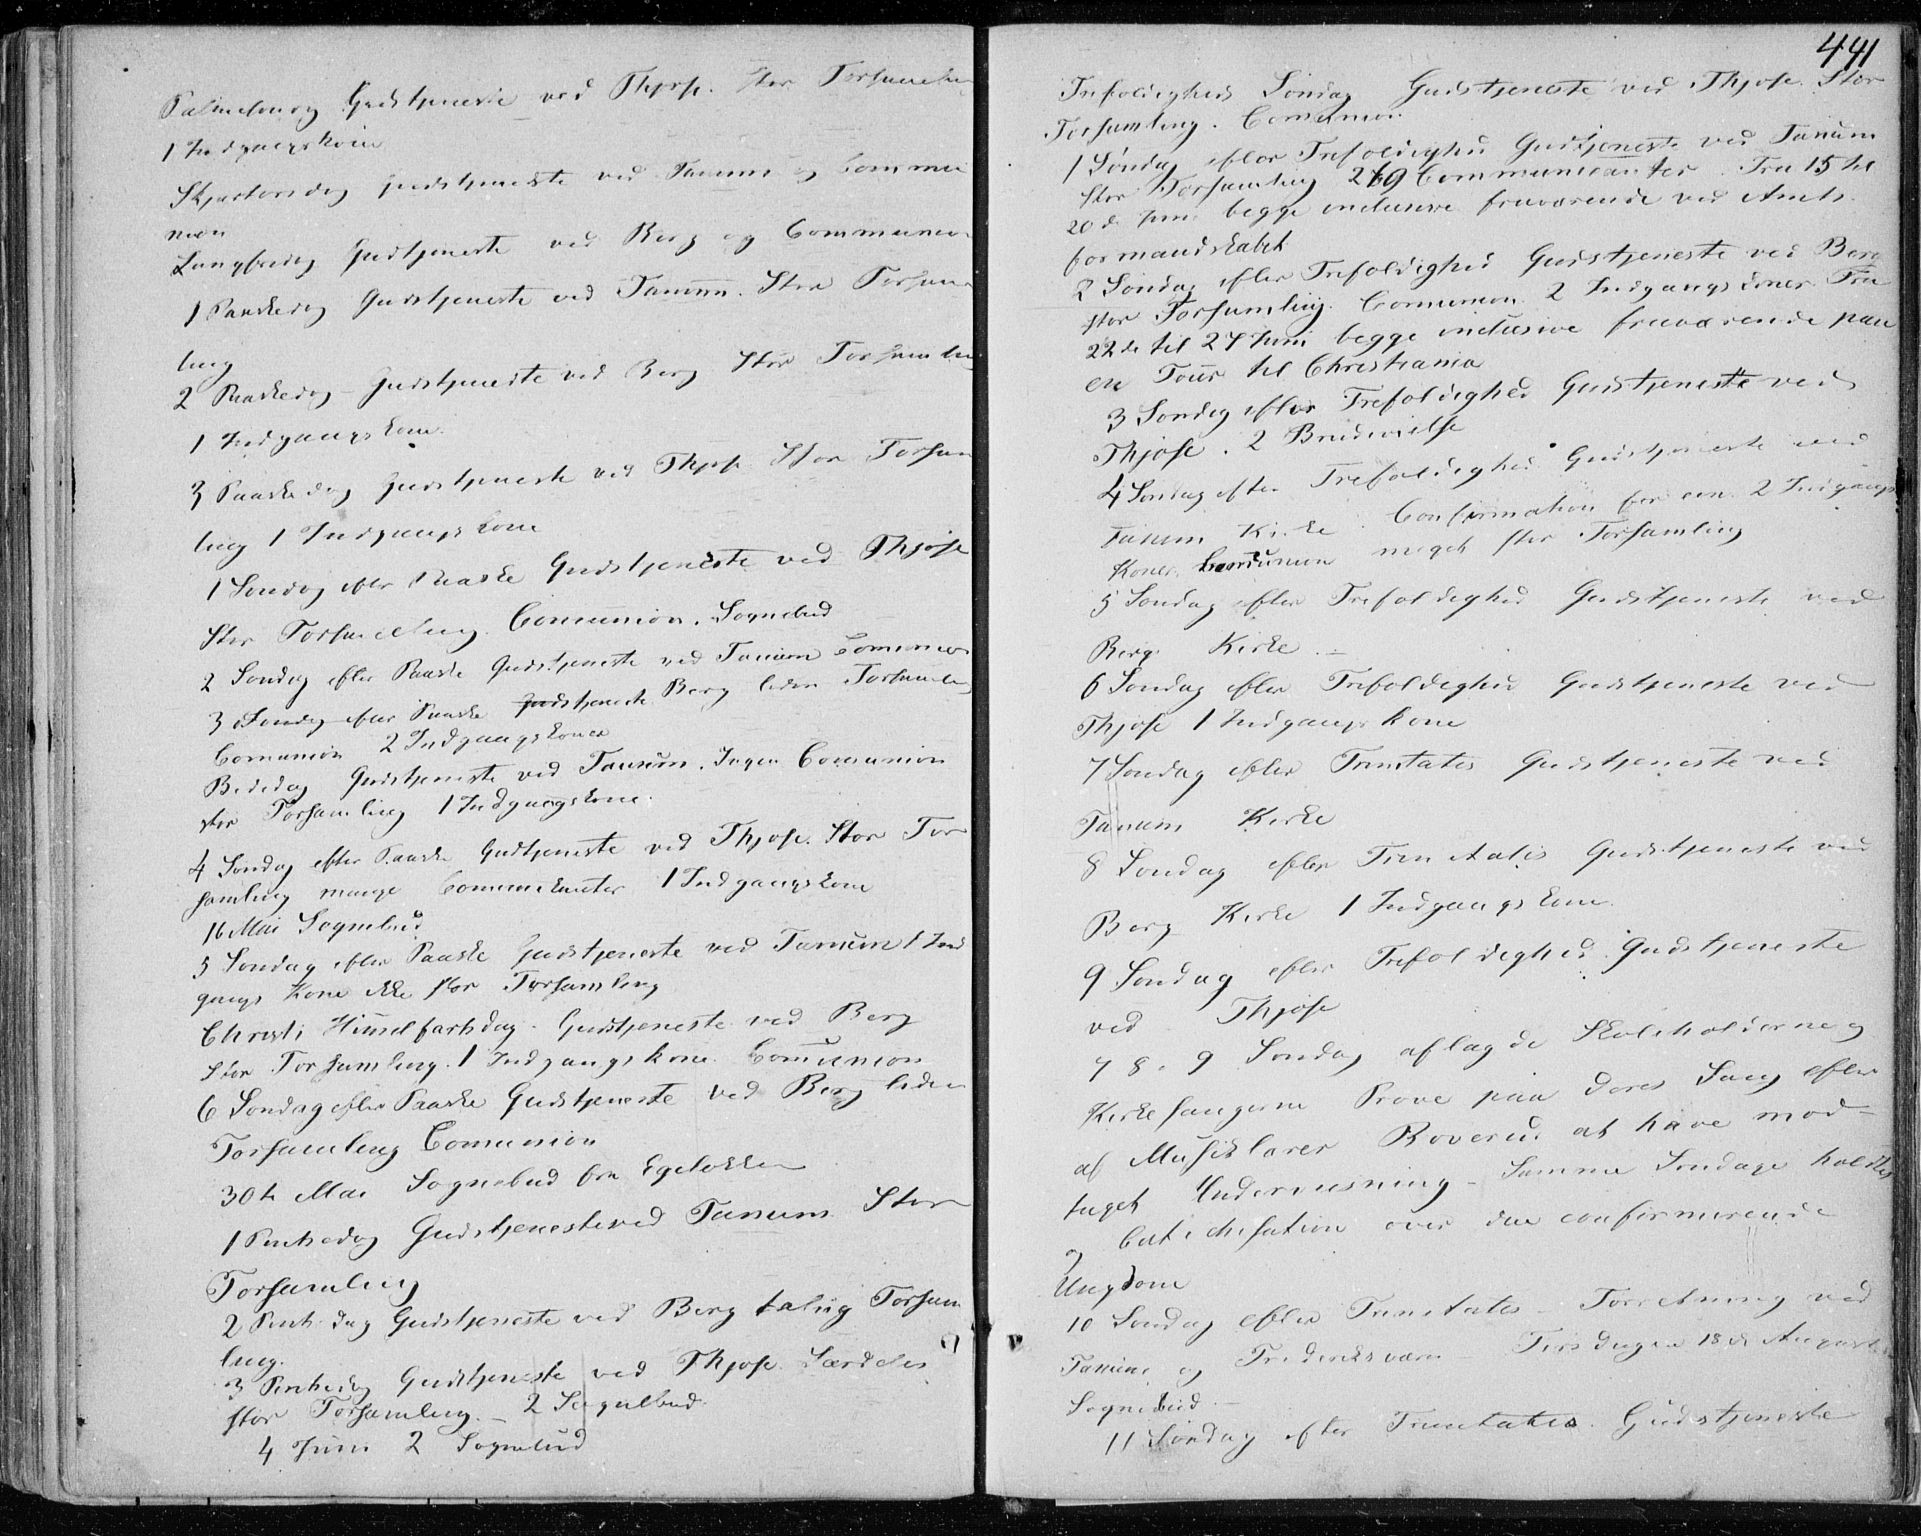 Palmesøndag Gudstjeneste ved Thjose. Stor Forsamlin
1 Indgangskone
Skjærtorsdag gudstjeneste ved Tanum og Commu
nion
Langfredag Gudstjeneste ved Berg og Communio
1 Paaskedag Gudstjeneste ved Tanum. Stor Forsam
ling
2 Paaskedag - Gudstjeneste ved Berg Stor Forsamlin
1 Indgangskone.
3 Paaskedag Gudstjeneste ved Thjose Stor Forsam
ling 1 Indgangskone
1 Søndag efter Paaske Gudstjeneste ved Thjose
Stor Forsamling. Comunion. Sognebud
2 Søndag efter Paaske Gudstjeneste ved Tanum Comunion
3 Søndag efter Paaske Gudstjeneste Berg liden Forsamling
Comunion 2 Indgangskoner
Bededag Gudstjeneste ved Tanum. Ingen Comunion
stor Forsamling 1 Indgangskone.
4 Søndag efter Paaske Gudtjeneste ved Thjose. Stor For
samling mange Communikanter 1 Indgangskone
16 Mai Sognebud
5 Søndag efter Paaske Gudstjeneste ved Tanum 1 Ind
gangs Kone ikke stor Forsamling
Christi Himmelfartsdag. Gudstjeneste ved Berg
Stor Forsamling. 1 Indgangskone. Comunion
6 Søndag efter Paaske Gudstjeneste ved Berg liden
Forsamling Comunion
30te Mai Sognebud fra Egeløkken
1 Pintsedag Gudstjeneste ved Tanum Stor
Forsamling
2 Pintsedag Gudstjeneste ved Berg talrig Forsam
ling.
3 Pintsedag Gudstjeneste ved Thjose. Særdeles
stor Forsamling. - 2 Sognebud.
4 Juni 2 Sognebud
441
Trefoldigheds Søndag Gudstjeneste ved Thjose. Stor
Forsamling. Comunion.
1 Søndag efter Trefoldighed Gudstjeneste ved Tanum
stor Forsamling 269 Communicanter. Fra 15 til
20de Juni begge inclusive fraværende ved Amts
formandskabet
2 Søndag efter Trefoldighed Gudstjeneste ved Berg
stor Forsamling. Comunion 2 Indgangskoner. Fra
22de til 27 Juni begge inclusive fraværende paa
en Tour til Christiania
3 Søndag efter Trefoldighed Gudstjeneste ved
Thjose. 2 Brudevielse
4 Søndag efter Trefoldighed Gudstjeneste ved
Tanum Kirke. Confirmation for een. 2 Indgangs
Koner. Comunion meget stor Forsamling
5 Søndag efter Trefoldighed Gudstjeneste ved
Berg Kirke. -
6 Søndag efter Trefoldighed Gudstjeneste ved
Thjose 1 Indgangskone
7 Søndag efter Trinitatis Gudstjeneste ved
Tanum Kirke
8 Søndag efter Trinitatis Gudstjeneste ved
Berg Kirke 1 Indgangskone.
9 Søndag efter Trefoldighed Gudstjeneste
ved Thjose
7 8. 9 Søndag aflagde Skoleholderne og
Kirkesangerne Prøve paa deres Sang efter
af Musiklærer Roverud at have mod-
taget Underviisning - Samme Søndage holdtes
og Catechisation over den confirmerende
Ungdom
10 Søndag efter Trinitatis - Forretning ved
Tanum og Frederiksværn Tirsdagen 18de August
Sognebud -
11 Søndag efter Trinitatis. Gudstjeneste